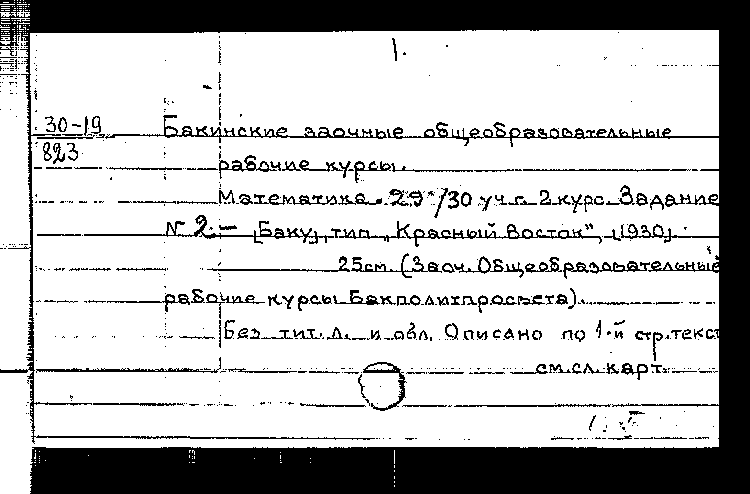 1.
30-19 Бакинские заочные общеобразовательные
823 рабочие курсы.
Математика. 29/30 уч г. 2 курс. Задание
№ 2. — [Баку], тип „Красный Восток", [1930].
25см. (Заоч. Общеобразовательные
рабочие курсы Бакполитпросвета).
Без тит. л. и обл. Описано по 1-й стр. текст
см. сл. карт.